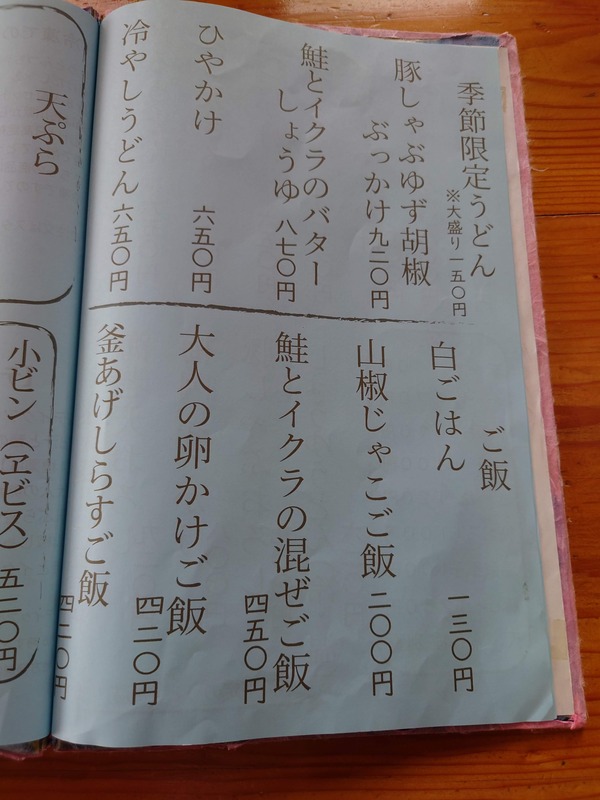 季節限定うどん
※大盛り一五〇円
豚しゃぶゆず胡椒
ぶっかけ九二〇円
鮭とイクラのバター
しょうゆ 八七〇円
ひやかけ 六五〇円
冷やしうどん 六五〇円
ご飯
白ごはん 一三〇円
山椒じゃこご飯 二〇〇円
鮭とイクラの混ぜご飯
四五〇円
大人の卵かけご飯
四二〇円
釜あげしらすご飯
四二〇円
天ぷら
小ビン（ヱビス）五二〇円